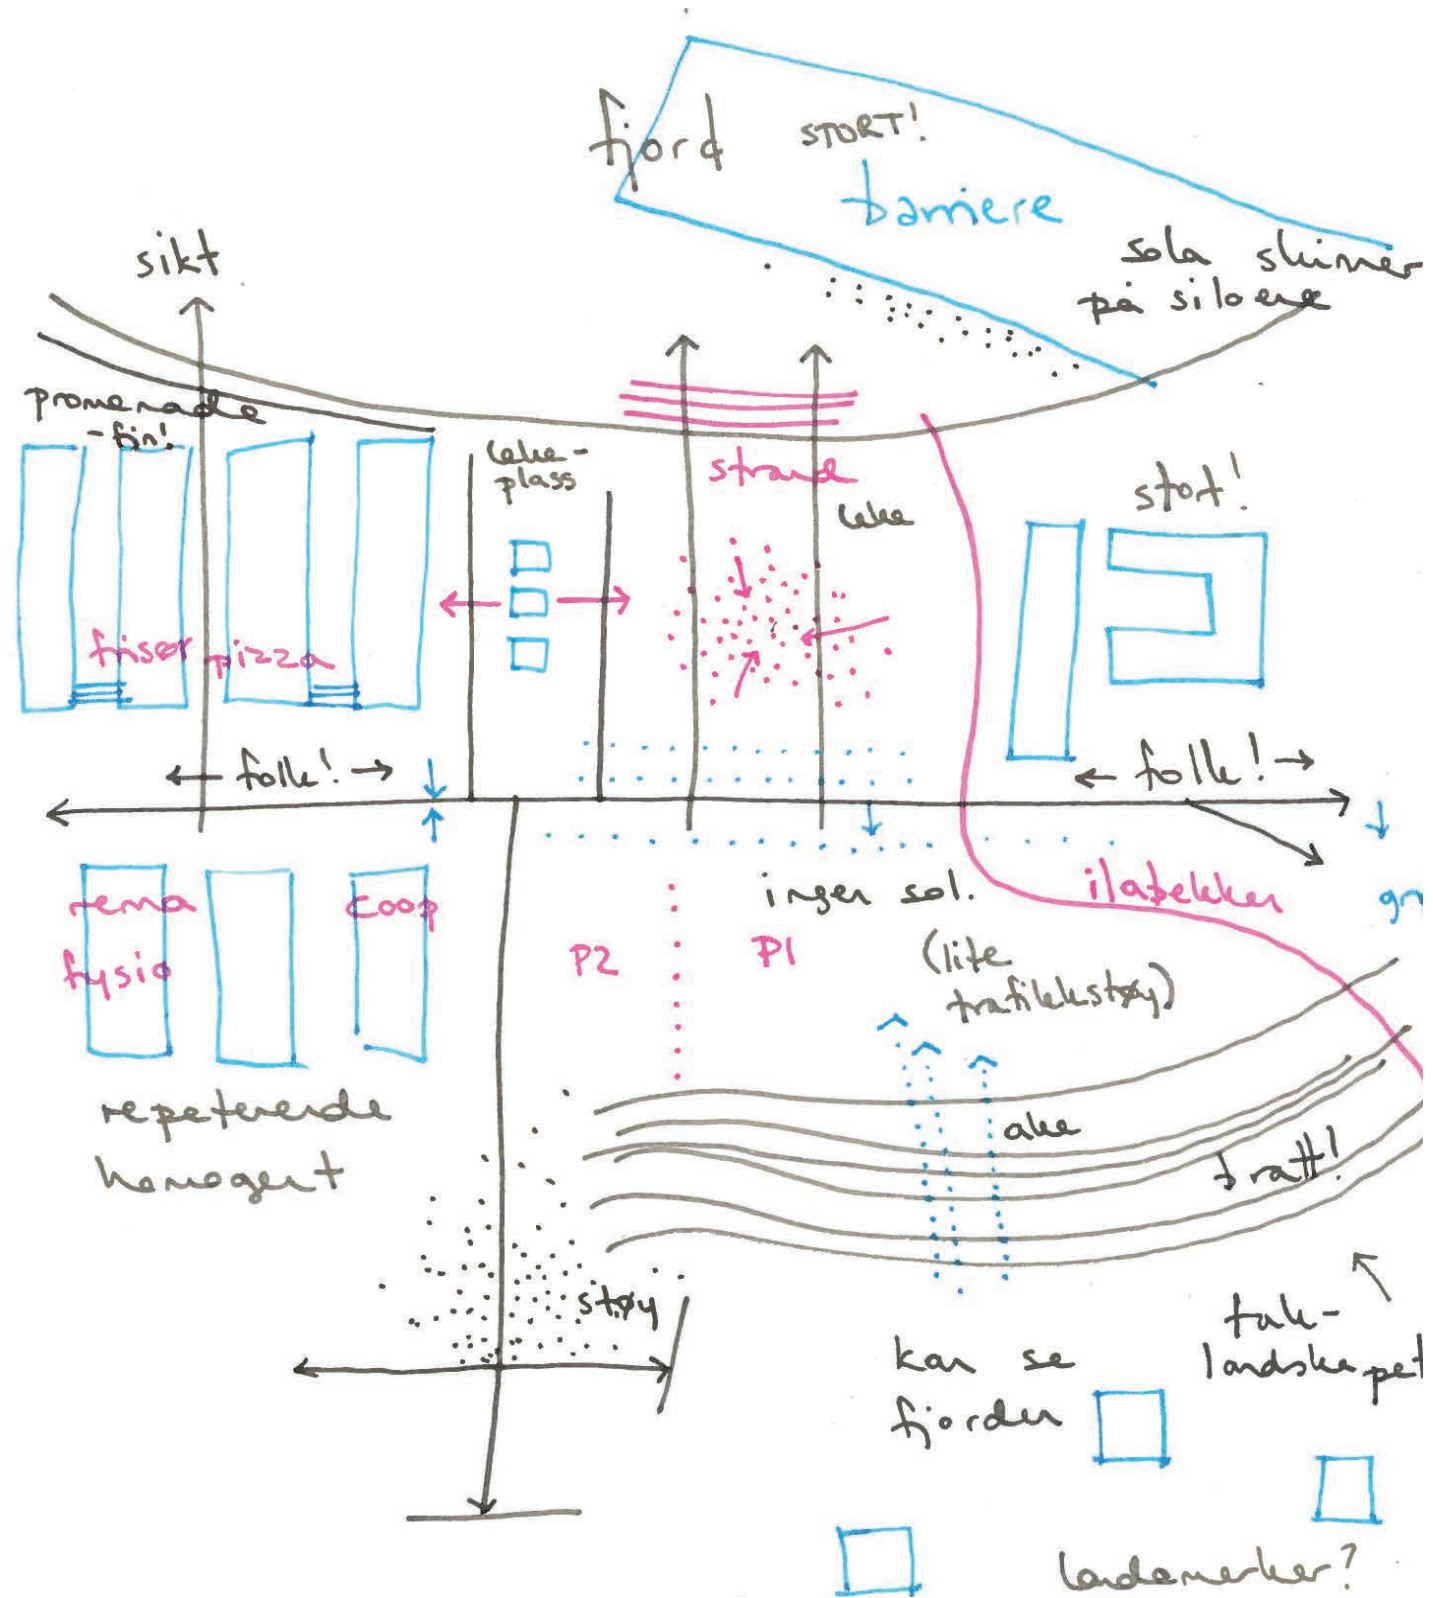 fjord
STORT!
barriere
sikt
sola skinner
på siloene
promenade
- fin!
leke-
plass
strand
leke
stort!
frisør pizza
← folk! →
← folk! →
rema
fysio
coop
ingen sol.
ilabekken
P2
P1
(lite
trafikkstøy)
repeterende
homogent
ake
bratt!
støy
kan se
fjorden
tak-
landskapet
landemerker?